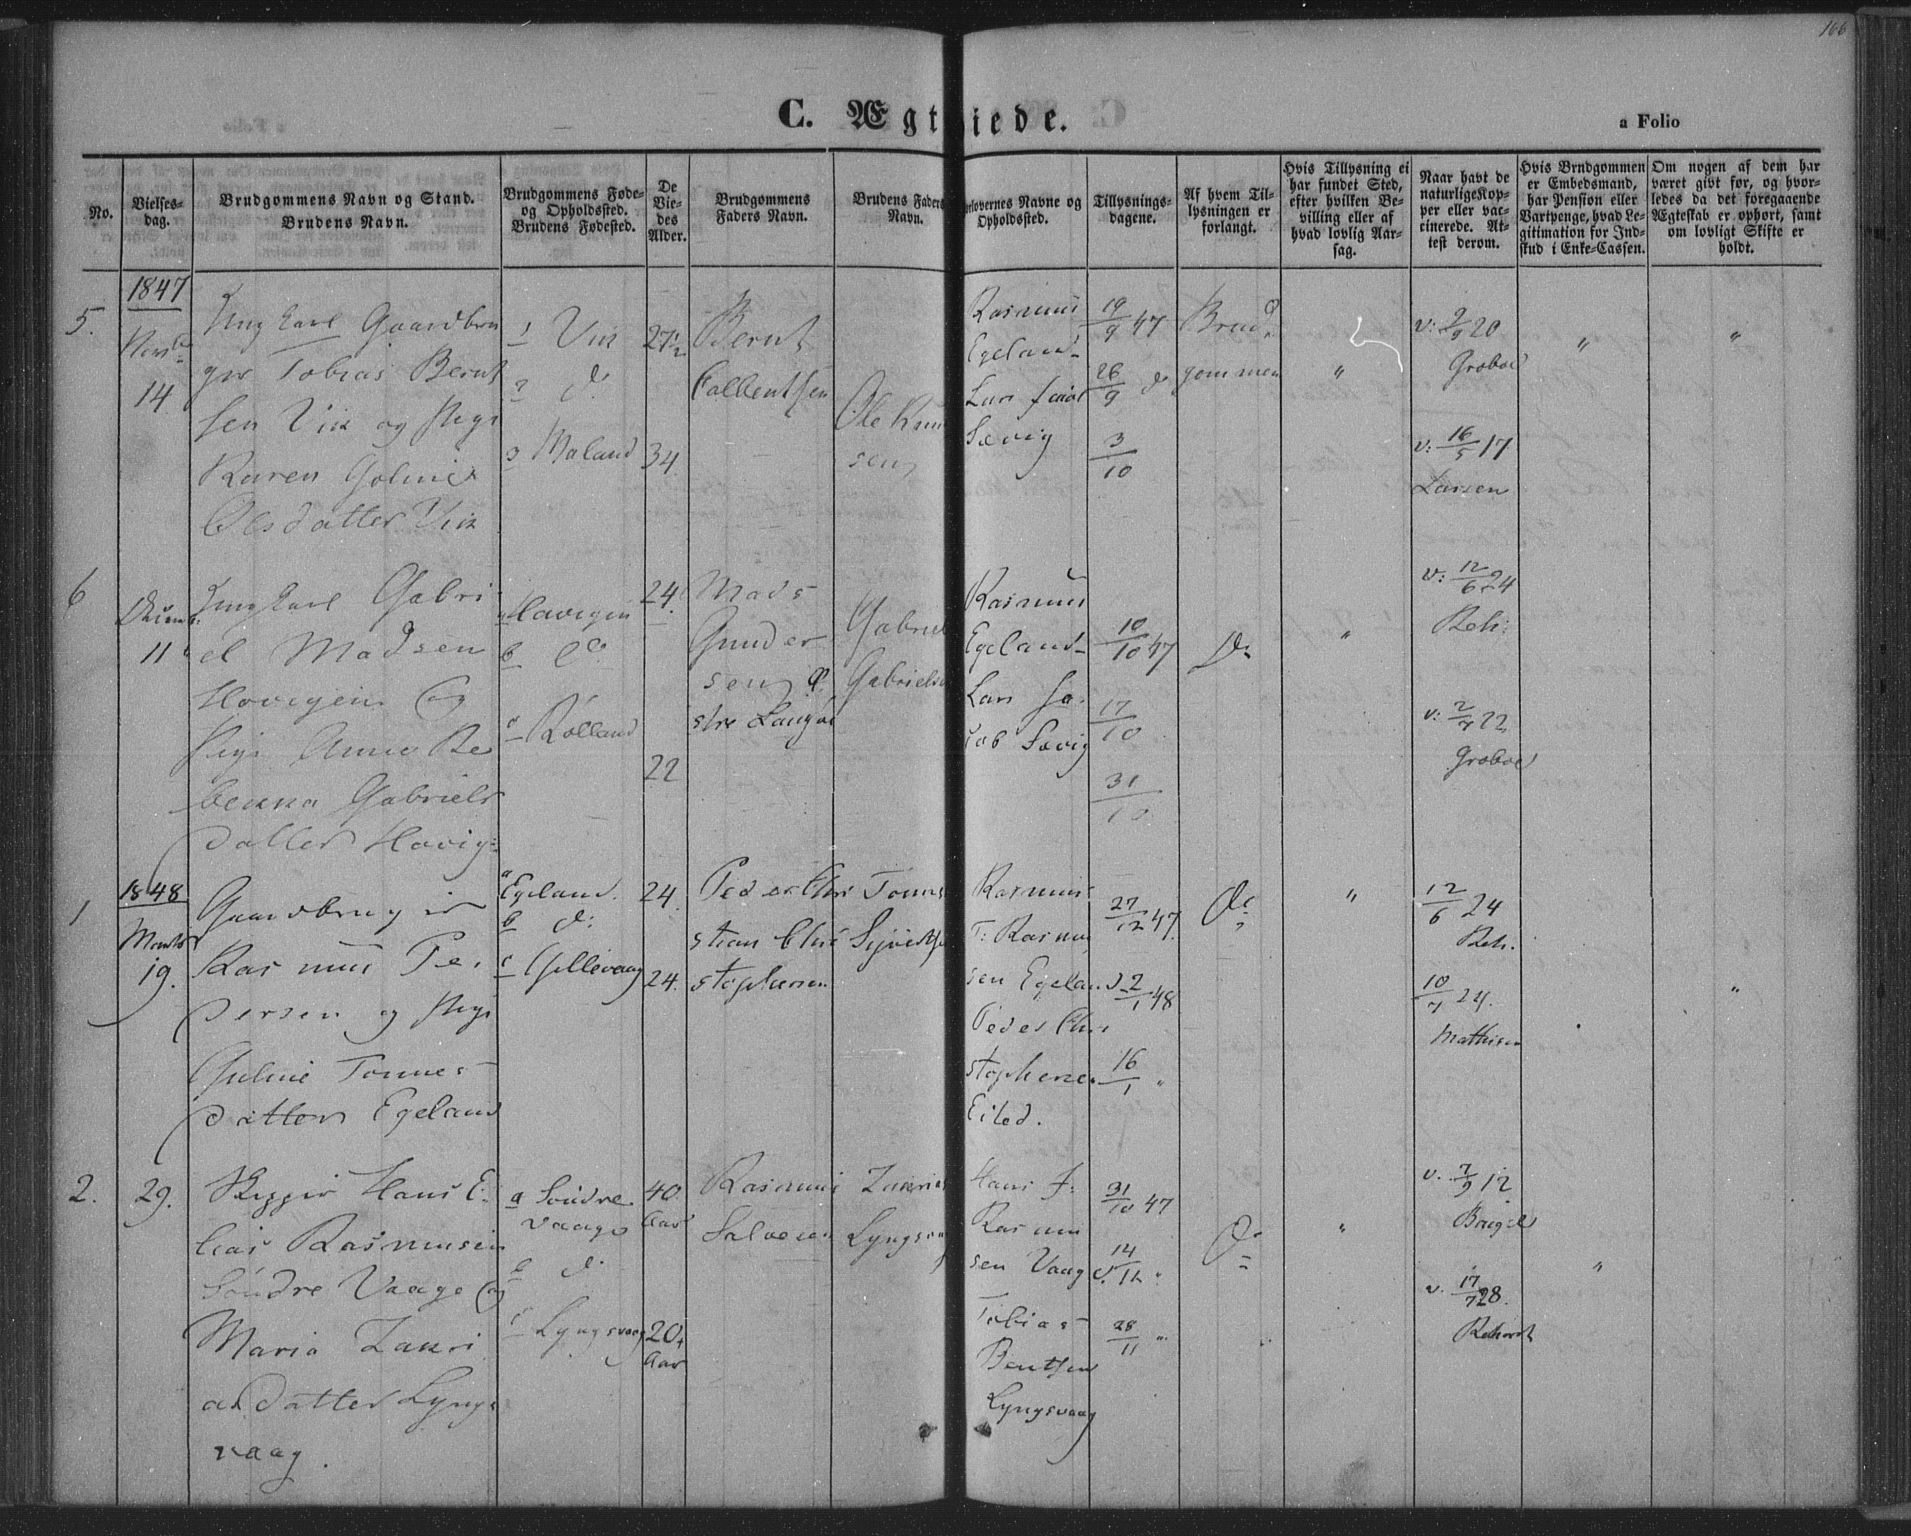 166
C. Ægtviede.
a Folio
No.
Vielses-
dag.
Brudgommens Navn og Stand.
Brudens Navn.
Brudgommens Føde-
og Opholdssted.
Brudens Fødested.
De
Vie-
des
Alder.
Brudgommens
Faders Navn.
Brudens Faders
Navn.
orlovernes Navne og
Opholdssted.
Tillysnings-
dagene.
Af hvem Til-
lysningen er
forlangt.
Hvis Tillysning ei
har fundet Sted,
efter hvilken Be-
villing eller af
hvad lovlig Aar-
sag.
Naar havt de
naturlige Kop-
per eller vac-
cinerede. At-
test derom.
Hvis Brudgommen
er Embedsmand,
har Pension eller
Vartpenge, hvad Le-
gitimation for Ind-
skud i Enke-Cassen.
Om nogen af dem har
været givt før, og hvor-
ledes da det foregaaende
Ægteskab er ophørt, samt
om lovligt Skifte er
holdt.
5.
1847
14
Ungkarl Gaardbru
ger Tobias Bernt
sen Vik og Pige
Karen
Olsdatter Vik
Vik
d:
Maland
27½
34.
Bernt
Ole Knu
sen
Rasmus
Egeland
Lars
Sævig
19/9 47
26/9 d
3/10
Brud
gommen
"
v: 2/9 20
Groboe
v: 16/5 17
Larsen
"
"
6
11
Ungkarl Gabri
el Madsen
Hovigen og
Pige Anne Re
bekka Gabriels
datter Hovig:
Hovigen
b d:
Rolland
24.
22
Mads
Gunder
sen
Gabriel
Gabrielse
Rasmus
Egeland
Lars Ja-
cob Sævig
10/10 47
17/10
31/10
D:
"
v: 12/6 24
Reh:
v: 2/7 22
Groboe
1
1848
Marts
19.
Gaardbruger
Rasmus Pe-
dersen og Pige
Guline Tønnes
datter Egeland
a Egeland.
b d:
c Gillevaag
24.
24.
Peder Chri
stian Chri
stophersen
Tønnes
Rasmus
T: Rasmu
sen Egeland
Peder Chri
stophersen
Eiled.
27/12 47
2/1 48
16/1 "
D:
"
12/6 24
Reh.
10/7 24.
Mathisen
"
2.
29.
Skipper Hans E-
lias Rasmusen
Søndre Vaage og
Maria Zakri
asdatter Lyngs
vaag.
a Søndre
vaage
b d:
c Lyngsvaag
40
Aar
20
Aar
Rasmus
Salvesen
Zakrias
Lyngsvaag
Hans J:
Rasmu
sen Vaag
Tobias
Bentsen
Lyngsvaag
31/10 47
14/11 "
28/11 "
D:
"
v. 7/9 12
v. 17/7 28.
"